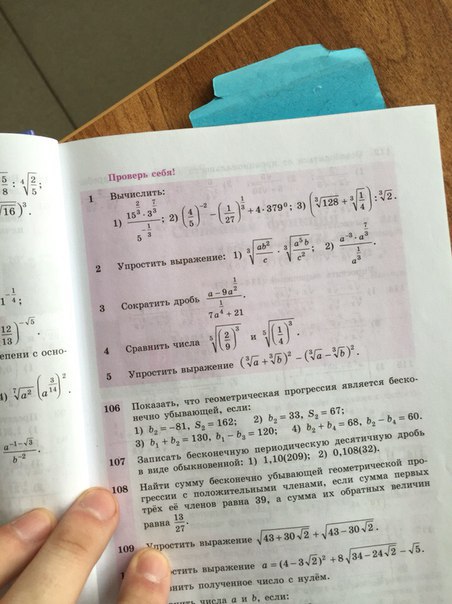 5/8 : ⁴√(2/5);
√16)³.
1^(-1/4);
(12/13)^(-√5)
тепени с осно-
4) ⁷√a² (a^(3/14))²
a^(-1-√3)/b^(-2).
Проверь себя!
1 Вычислить:
1) (15^(2/3) · 3^(7/3))/(5^(-1/3)); 2) (4/5)^(-2) − (1/27)^(1/3) + 4 · 379⁰; 3) (³√128 + ³√(1/4)) : ³√2.
2 Упростить выражение: 1) ³√(ab²/c) · ³√(a⁵b/c²); 2) (a^(-3) · a^(7/3))/(a^(1/3)).
3 Сократить дробь (a − 9a^(1/2))/(7a^(1/4) + 21)
4 Сравнить числа ⁵√((2/9)³) и ⁵√((1/4)³).
5 Упростить выражение (³√a + ³√b)² − (³√a − ³√b)².
106 Показать, что геометрическая прогрессия является беско-
нечно убывающей, если:
1) b₂ = −81, S₂ = 162; 2) b₂ = 33, S₂ = 67;
3) b₁ + b₂ = 130, b₁ − b₃ = 120; 4) b₂ + b₄ = 68, b₂ − b₄ = 60.
107 Записать бесконечную периодическую десятичную дробь
в виде обыкновенной: 1) 1,10(209); 2) 0,108(32).
108 Найти сумму бесконечно убывающей геометрической про-
грессии с положительными членами, если сумма первых
трёх её членов равна 39, а сумма их обратных величин
равна 13/27.
109 Упростить выражение √(43 + 30√2) + √(43 − 30√2).
выражение a = (4 − 3√2)² + 8√(34 − 24√2) − √5.
полученное число с нулём.
числа a и b, если: